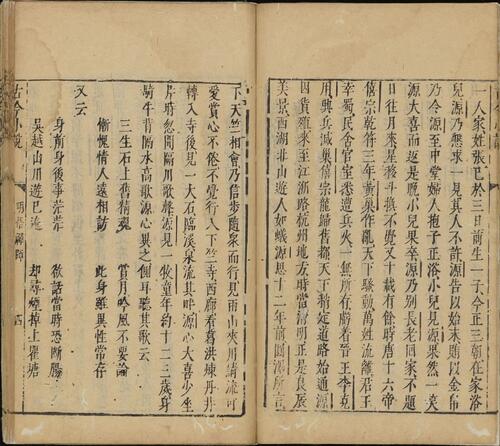 一人家姓張已於三日前生一子今正三朝在家浴
兒源乃懇求一見其人不許源告以始末賂以金帛
乃令源至中堂婦人抱子正浴小兒見源果然一笑
源大喜而返是晚小兒果卒源乃別長老回家不題
日往月來星移斗換不覺又十載有餘時唐十六帝
僖宗乾符三年黃巢作亂天下騷動萬姓流離君王
幸蜀民舍官室悉遭兵火一無所存虧着晉王李克
用興兵滅巢僖宗龍歸舊都天下稍定道路始通源
因貨殖來至江浙路杭州地方時當清明正是良辰
美景西湖北山遊人如蟻源思十二年前圓澤所言
下天竺相會乃信步隨衆而行見兩山夾川清流可
愛賞心不倦不覺行入下竺寺西廊看葛洪煉丹井
轉入寺後見一大石臨溪泉流其畔源心大喜少坐
片時忽聞隔川歌聲源見一牧童年約十二三歲身
騎牛背隔水高歌源心異之側耳聽其歌云
三生石上舊精魂　賞月吟風不要論
慚愧情人遠相訪　此身雖異性常存
又云
身前身後事茫茫　欲話當時恐斷腸
吳越山川遊已遍　却尋煙棹上瞿塘
古今小說　明悟禪師